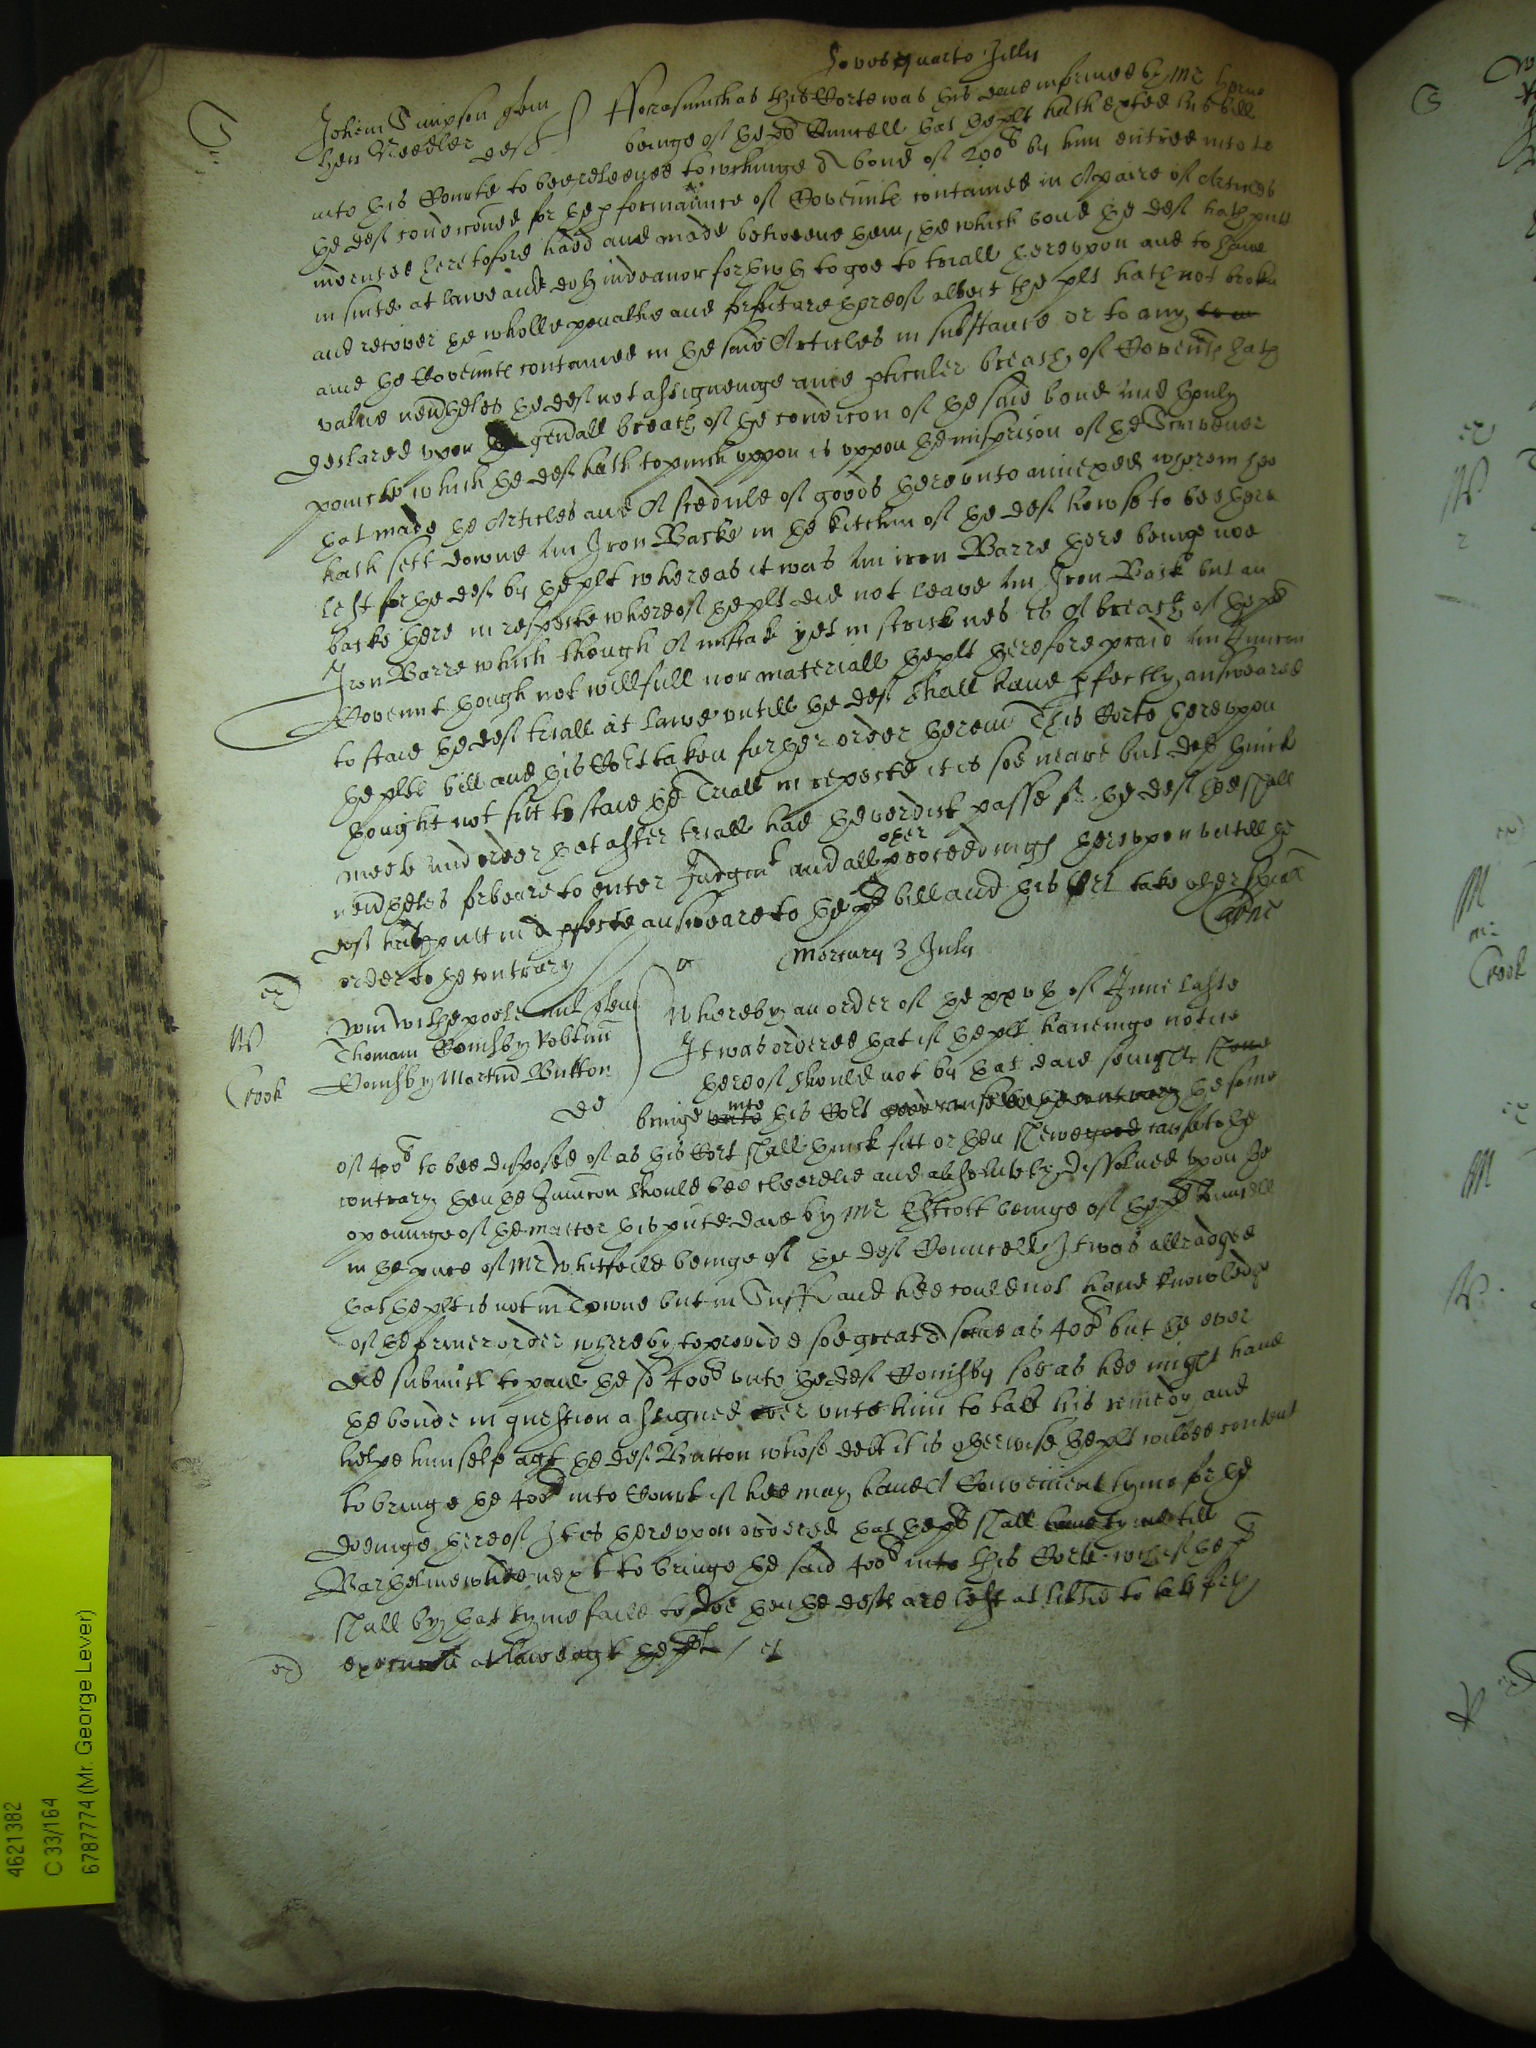 Jovis quarto Julii
S
Johem Simpson quer
Hen Needler def
Forasmuch as this Corte was this daie informed by Mr Herne
beinge of the plts Councell that the plt hath exted his bill
into this Courte to bee releeved towchinge A bond of 200li by him entred into to
the def condiconed for the pformaunce of Covennts contained in A paire of Articles
indented heretofore had and made betweene them, the which bond the def hath putt
in suite at lawe and doth indeavor forthwth to goe to triall therevpon and to have
and recover the wholle penaltie and forfeiture thereof albeit the plt hath not broken
anie the Covennts contained in the said Articles in substance or to any
value nevtheles the def not assigneinge anie pticuler breach of Covennts hath
declared vpon the genrall breach of the condicon of the said bond and thonly
pointe which the def hath to pinch vppon is vppon the misprison of the Scrivener
that made the Articles and A scedule of goods therevnto annexed wherein hee
hath sett downe An Iron Backe in the kitchin of the def howse to bee there
left for the def by the plt whereas it was An iron Barre there beinge noe
backe there in respecte whereof the plt did not leave An Iron Back but an
Iron Barre which though A mistak yet in stricknes is A breach of the sd
Covennt though not willfull nor materiall the plt therefore praid An Iniuncon
to staie the def triall at lawe vntill the def shall have pfectly answeared
the plts bill and this Cort taken further order therein This Corte therevpon
thought not fitt to staie the Triall in respecte it is soe neare but doth thinck
meete and order that after triall had the verdict passe for the def hee shall
nevtheles forbeare to enter Judgmt and all other proceedings therevpon vntill the
def hath putt in A pfecte answeare to the plts bill and this Cort take other
order to the contrary
Mercurii 3 Julii
W
Crook
Wm Withepoole mil quer
Thomam Cornsby Robtum
Cornsby Martin Button
def
Whereby an order of the xxvth of June laste
It was ordered that if the plt haveinge notice
thereof should not by that daie sennight
bringe into this Cort the some
of 400li to bee disposed of as this Cort shall thinck fitt or then shewe cause to the
contrary then the Iniuncon should bee cleerelie and absolutely dissolved vpon the
openinge of the matter this pnte daie by Mr Estcott beinge of the plts Councell
in the pnce of Mr Whitfeild beinge of the def Councell It was alleadged
that the plt is not in Towne but in Suff and hee could not have knowledg
of the former order whereby to provide soe great A some as 400li but the ever
did submitt to paie the sd 400li vnto the def Cornsby soe as hee might have
the bonde in question assigned over vnto him to take his remedy and
helpe himselfe agt the def Button whose debt it is otherwise the plt wilbee content
to bringe the 400li into Court if hee may have A Convenient tyme for the
doeinge thereof It is therevpon ordered that the plt shall have tyme till
Bartholmewtide next to bringe the said 400li into this Corte wch if the plt
shall by that tyme faile to doe then the defts are left at libtie to take forth
execucon at lawe agt the plt
4621382
C 33/164
6787774 (Mr. George Lever)